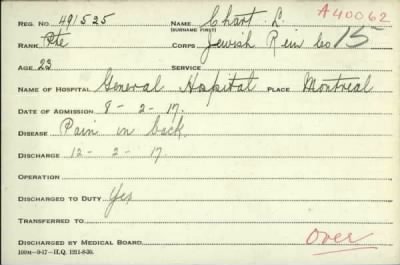 REG. NO. 491525 NAME Chart L. A40062
(SURNAME FIRST)
RANK Pte CORPS Jewish Rein Co 15
AGE 23 SERVICE
NAME OF HOSPITAL General Hospital PLACE Montreal
DATE OF ADMISSION 8-2-17.
DISEASE Pain in back.
DISCHARGE 12-2-17
OPERATION
DISCHARGED TO DUTY Yes
TRANSFERRED TO
DISCHARGED BY MEDICAL BOARD Over
100M-9-17-H.Q. 1211-8-30.